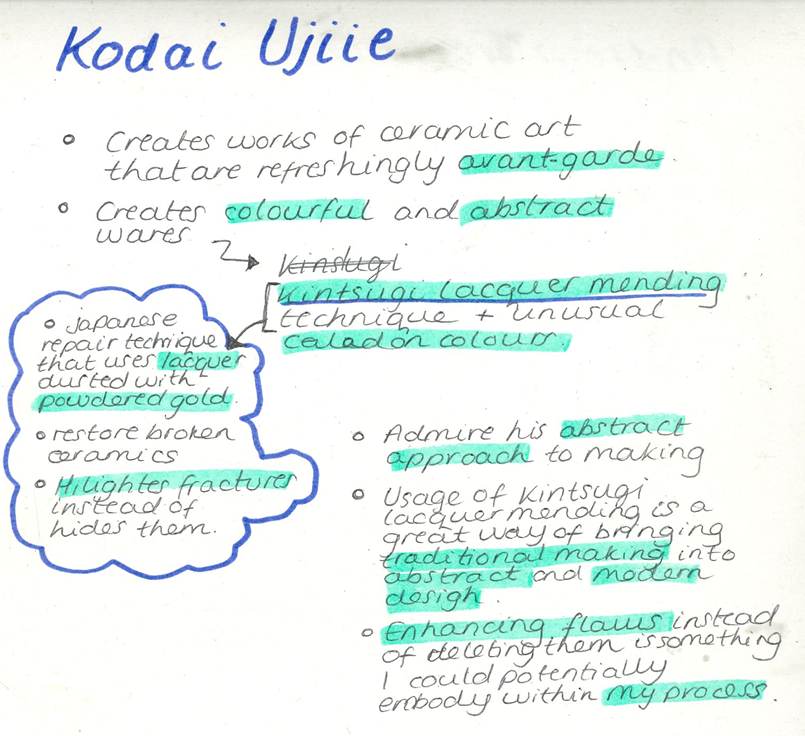 Kodai Ujiie
• Creates works of ceramic art
that are refreshingly avant-garde.
• Creates colourful and abstract
wares
Kinstugi
Kintsugi lacquer mending
technique + unusual
celadon colours.
• Japanese
repair technique
that uses lacquer
dusted with
powdered gold.
• restore broken
ceramics
• Hilightes fractures
instead of
hides them.
• Admire his abstract
approach to making
• Usage of Kintsugi
lacquer mending is a
great way of bringing
traditional making into
abstract and modern
design.
• Enhancing flaws instead
of deleting them is something
I could potentially
embody within my process.